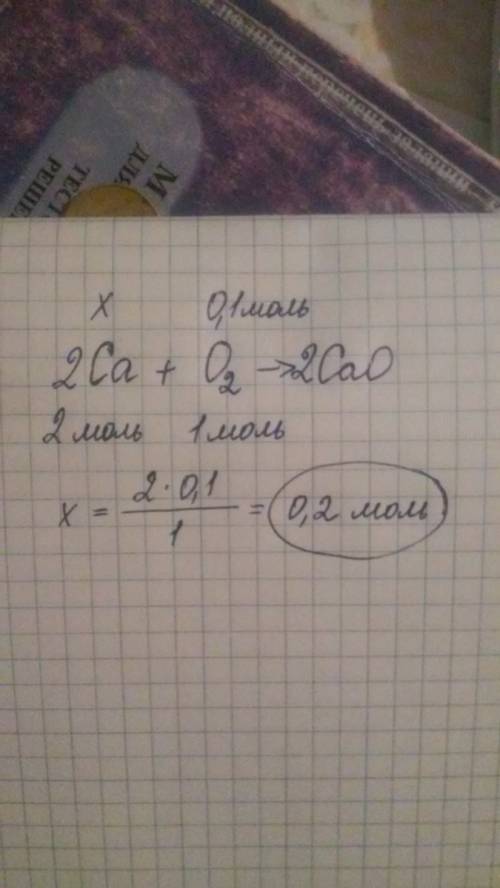 М
ДЛЯ
ТЕСТ
РЕШЕ
x 0,1 моль
2Ca + O₂ → 2CaO
2 моль 1 моль
x = 2·0,1 / 1 = 0,2 моль